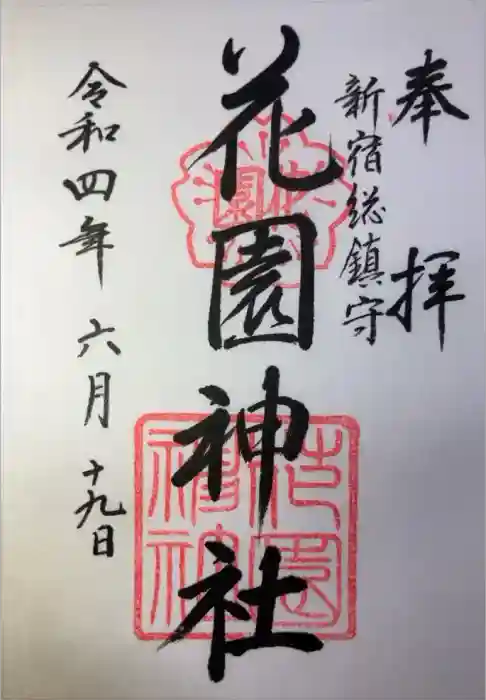 奉拝
新宿総鎮守
花園神社
令和四年六月十九日